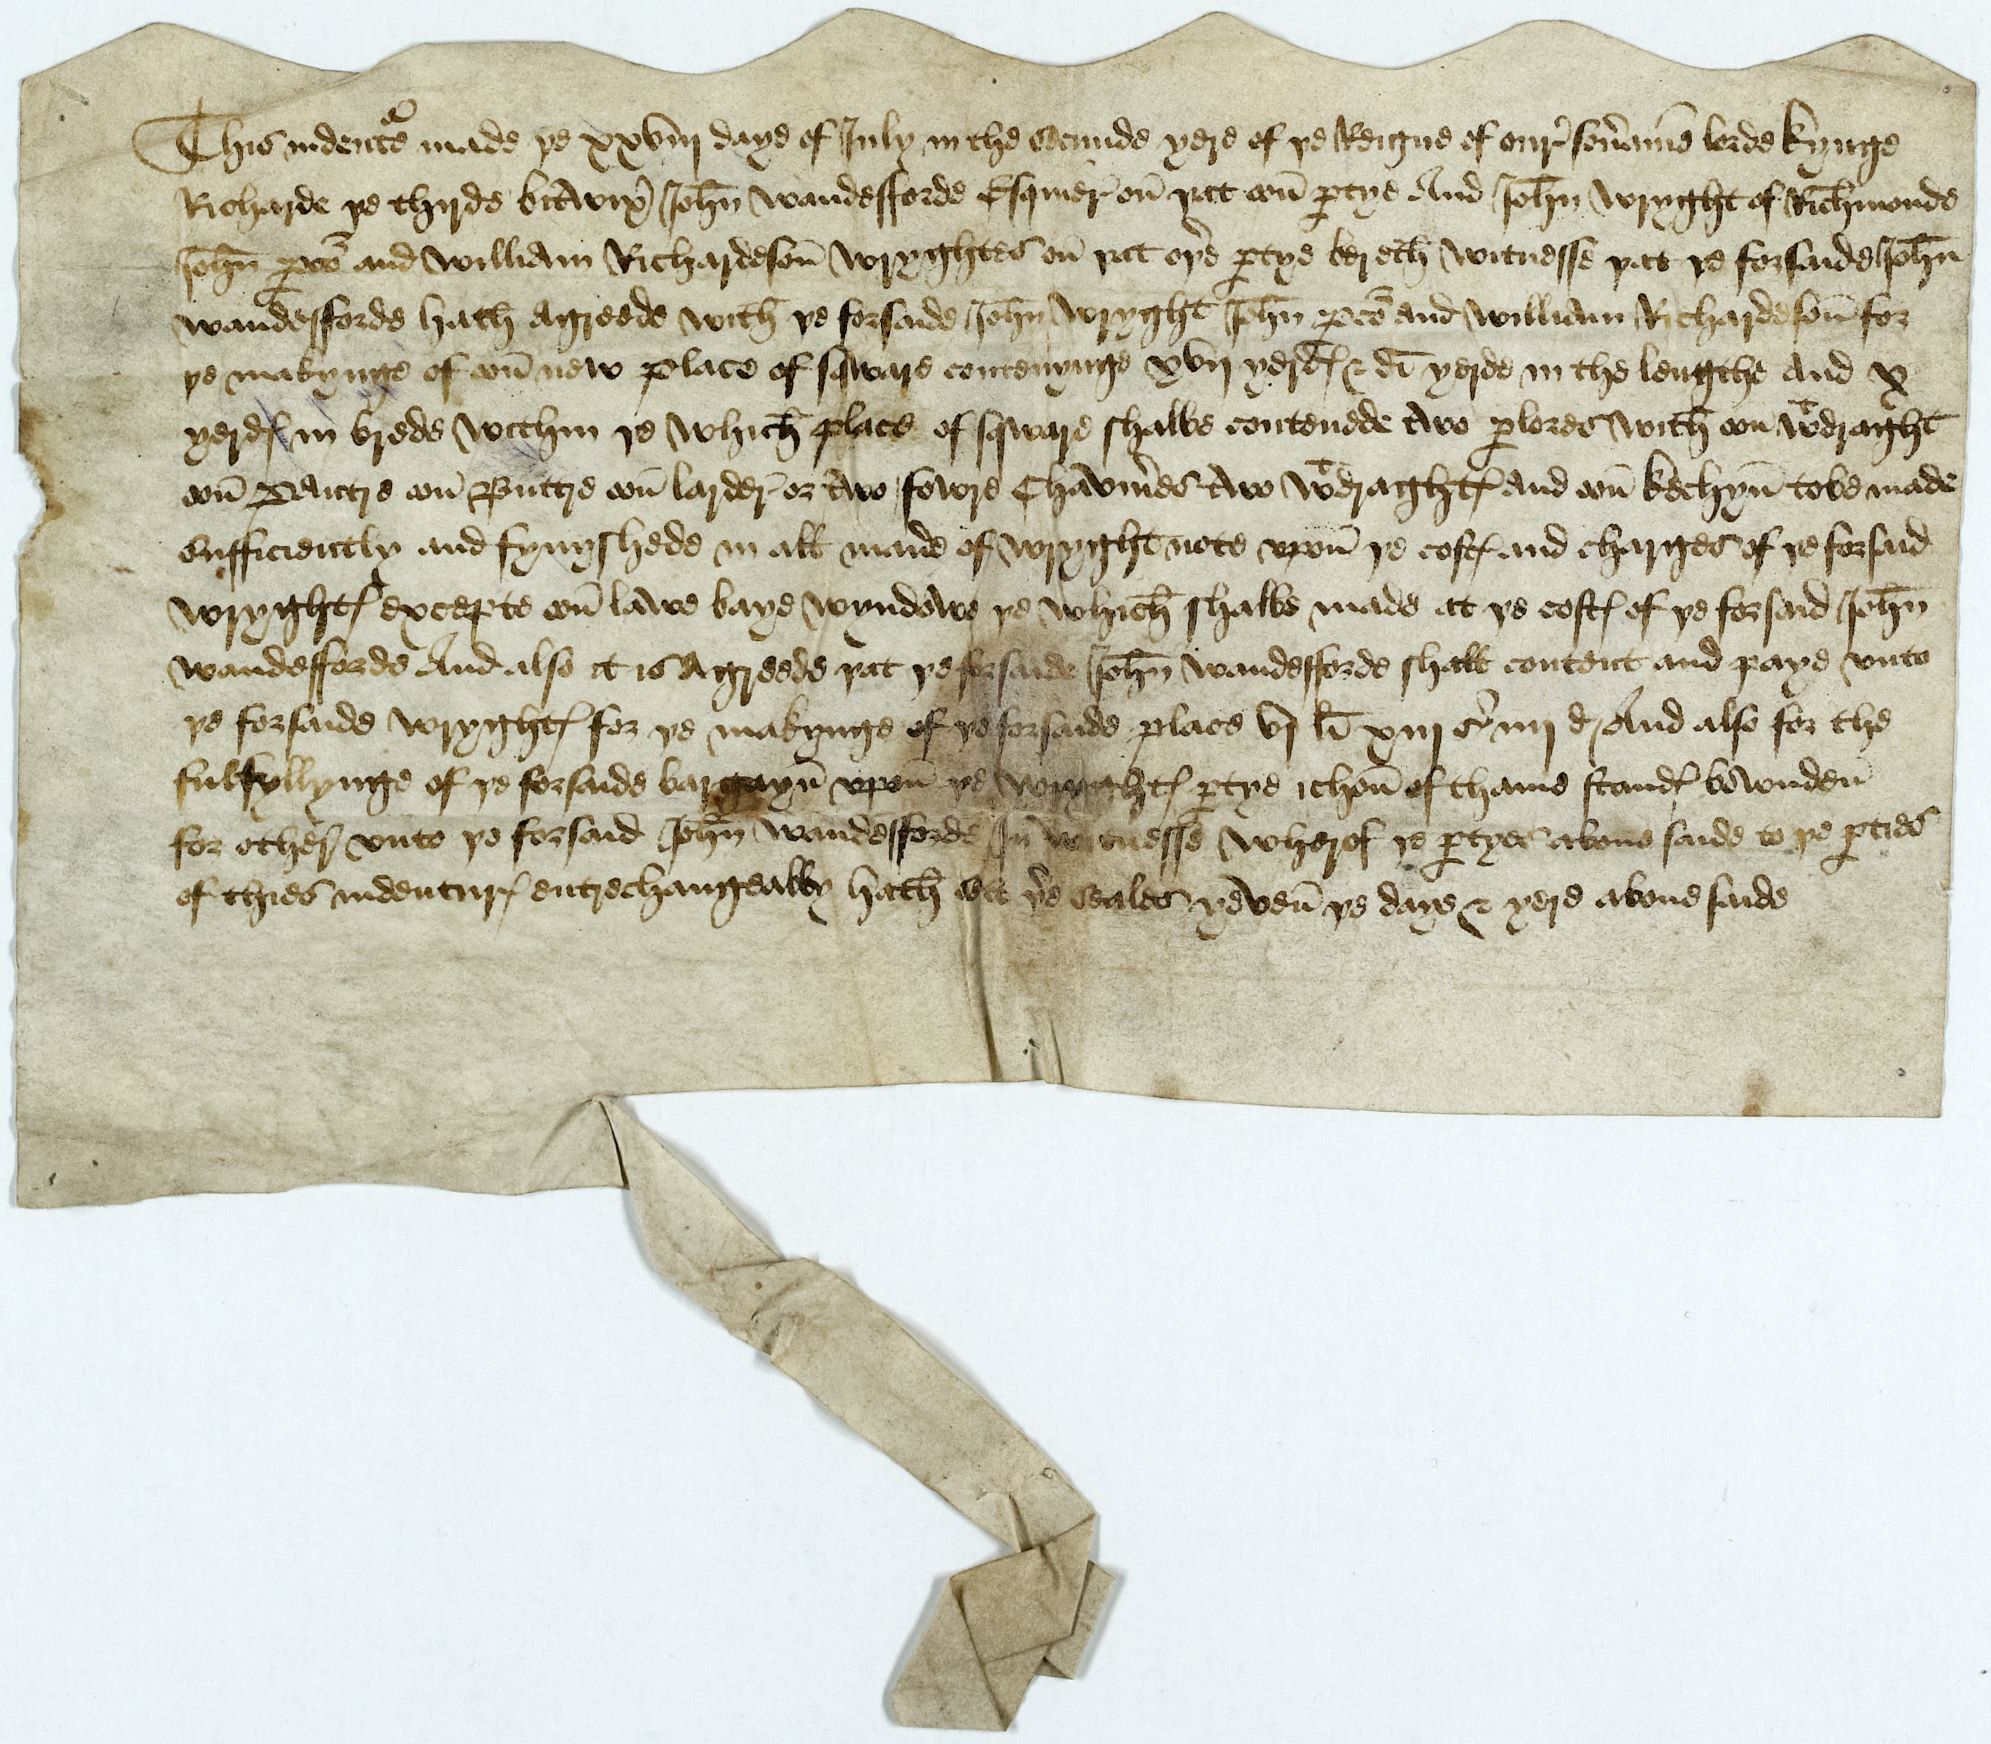 This indentᵃe made ye xxviij daye of July in the secunde yere of ye Reigne of our soũaine lorde kynge
Richarde ye thirde bitwix John Wandesforde Esquier on yat oon ptye And John Wryght of Richmonde
John and William Richardeson Wryghtes on yat oyr ptye bereth witnesse yat ye forsaide John
Wandesforde hath Agreede with ye forsaide John Wryght John and William Richardeson for
ye makynge of oon new place of sqware contenynge xvij yerdes & di yerde in the lengthe And x
yerdes in brede within ye which place of sqware shalbe contenede two plores with oon wᵗdraght
oon Pantre oon Buttre oon larder or two fowre Chavmres two wᵗdraghtes And oon kechyn to be made
sufficiently and fynyshede in all maner of wryght note vpon ye costes and charges of ye forsaid
Wryghtes excepte oon lawe baye wyndowe ye which shalbe made at ye costes of ye forsaid John
Wandesforde And also it is Agreede yat ye forsaide John Wandesforde shall content and paye vnto
ye forsaide Wryghtes for ye makynge of ye forsaide place vj li xiij s iiij d And also for the
fulfyllynge of ye forsaide bargayn vpon ye Wryghtes ptye ichon of thame standes bownden
for other vnto ye forsaid John Wandesforde In witnesse wherof ye ptyes aboue saide to ye pties
of thies indentures entrechangeably hath set yer Seales yeven ye daye & yere aboue saide